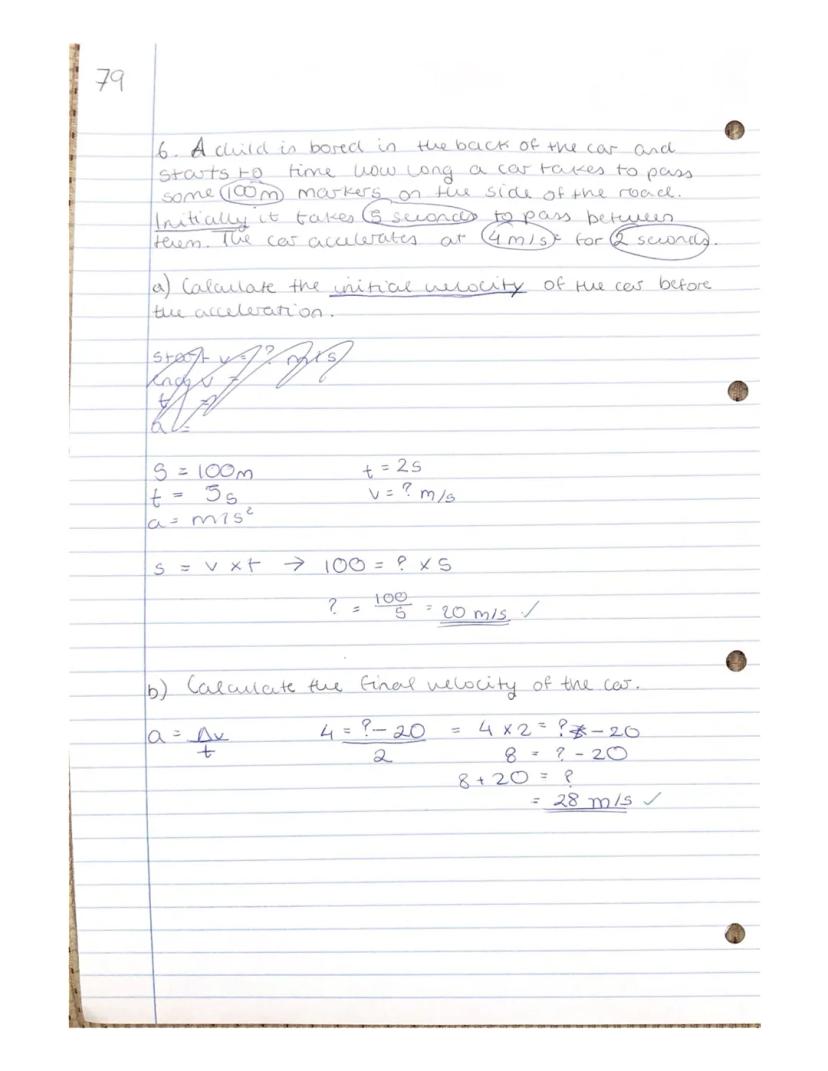 79
6. A child is bored in the back of the car and
starts to time how long a car takes to pass
some 100m markers on the side of the road.
Initially it takes 5 seconds to pass between
them. The car accelerates at 4m/s² for 2 seconds.
a) Calculate the initial velocity of the car before
the acceleration.
start v = ? m/s
end v =
t =
a =
S = 100m t = 2s
t = 5s v = ? m/s
a = m/s²
s = v x t → 100 = ? x 5
? = 100/5 = 20 m/s ✓
b) Calculate the final velocity of the car.
a = Δv/t 4 = ?-20/2 = 4 x 2 = ? - 20
8 = ? - 20
8 + 20 = ?
= 28 m/s ✓